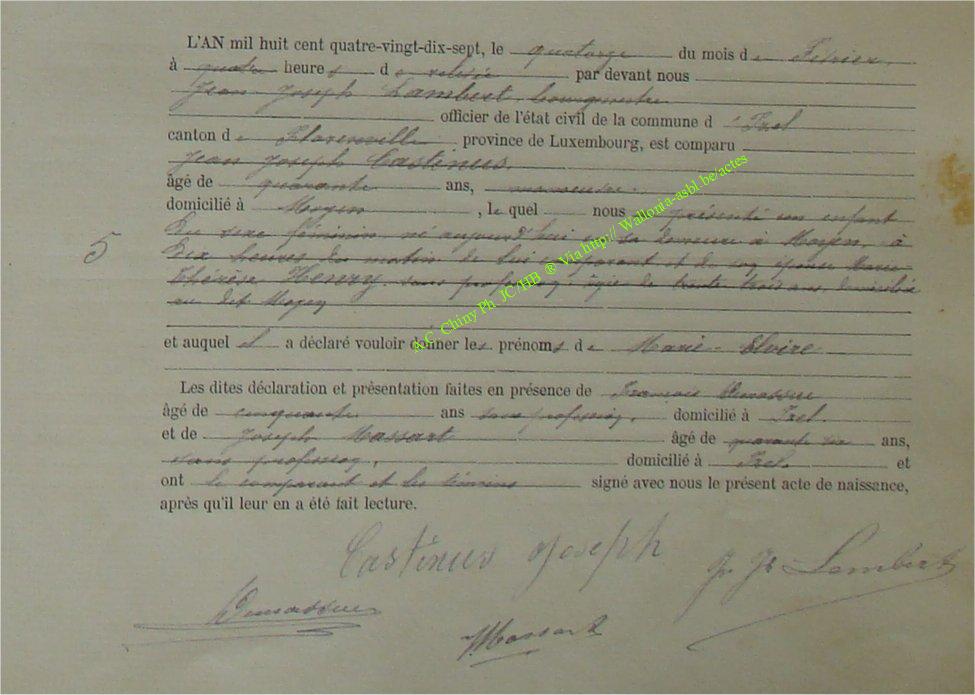 L'AN mil huit cent quatre-vingt-dix-sept, le quatorze du mois de Février,
à quatre heures de relevée par devant nous
Jean Joseph Lambert, bourgmestre
officier de l'état civil de la commune d'Izel
canton de Florenville province de Luxembourg, est comparu
Jean Joseph Castinus,
âgé de quarante ans, manoeuvre.
domicilié à Moyen, lequel nous a présenté un enfant
5
Du sexe féminin né aujourd'hui en sa demeure à Moyen, à
Dix heures du matin de lui comparant et de son épouse Marie
Thérèse Henry, sans profession, âgée de trente trois ans, domiciliée
au dit Moyen
et auquel il a déclaré vouloir donner les prénoms de Marie-Elvire
Les dites déclaration et présentation faites en présence de François
âgé de cinquante ans sans profession, domicilié à Izel.
et de Joseph Massart âgé de quarante six ans,
sans profession, domicilié à Izel. et
ont le comparant et les témoins signé avec nous le présent acte de naissance,
après qu'il leur en a été fait lecture.
Castinus Joseph
J. Jh Lambert
J Massart
A.C Chiny Ph JC/HB ® Via http:// Wallonia-asbl.be/actes